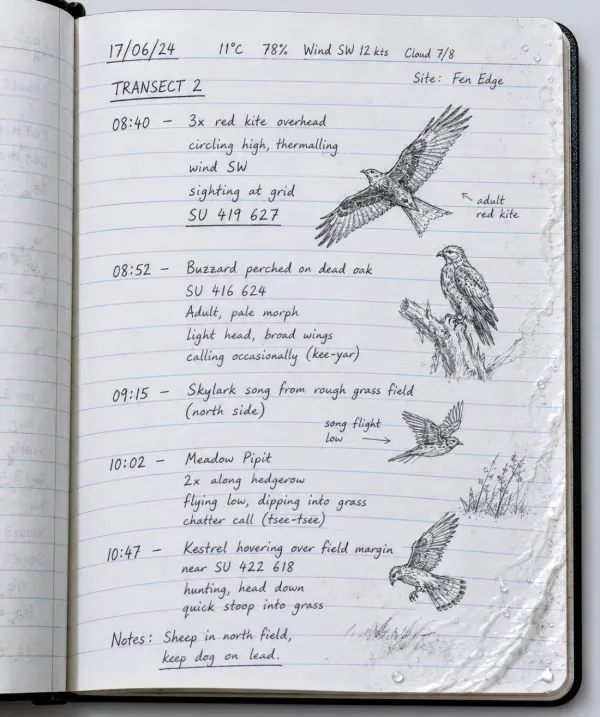 17/06/24 11°C 78% Wind SW 12 kts Cloud 7/8
TRANSECT 2 Site: Fen Edge
08:40 – 3x red kite overhead
circling high, thermalling
wind SW
sighting at grid
SU 419 627
adult
red kite
08:52 – Buzzard perched on dead oak
SU 416 624
Adult, pale morph
Light head, broad wings
calling occasionally (kee-yar)
09:15 – Skylark song from rough grass field
(north side)
song flight
low
10:02 – Meadow Pipit
2x along hedgerow
flying low, dipping into grass
chatter call (tsee-tsee)
10:47 – Kestrel hovering over field margin
near SU 422 618
hunting, head down
quick stoop into grass
Notes: Sheep in north field,
keep dog on lead.